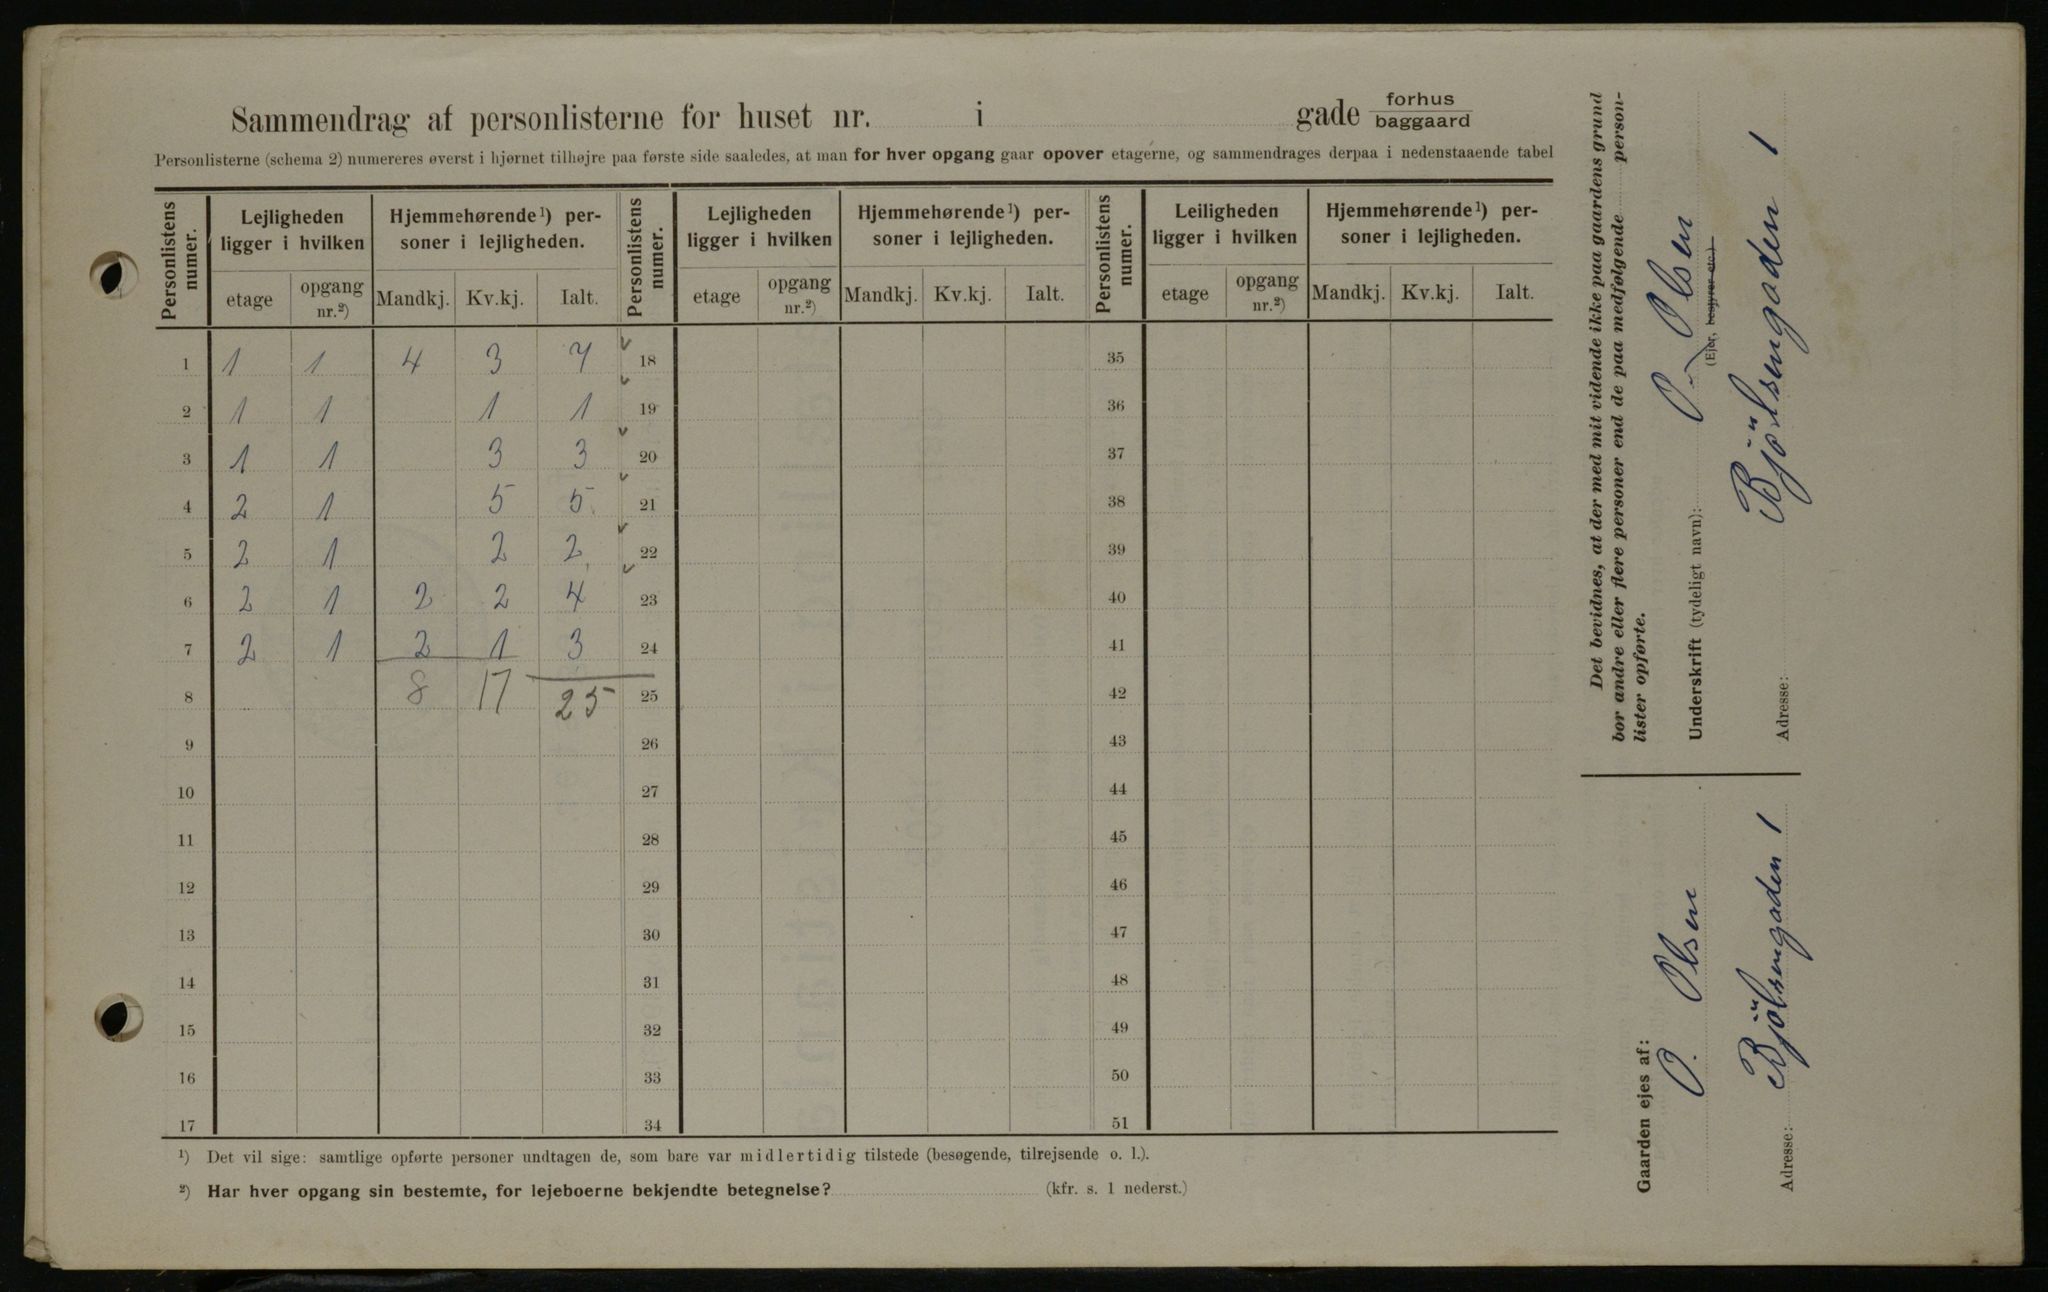 Sammendrag af personlisterne for huset nr. i gade forhus baggaard
Personlisterne (schema 2) numereres øverst i hjørnet tilhøjre paa første side saaledes, at man for hver opgang gaar opover etagerne, og sammendrages derpaa i nedenstaaende tabel
Personlistens numer. Lejligheden ligger i hvilken Hjemmehørende¹) personer i lejligheden. Personlistens numer. Lejligheden ligger i hvilken Hjemmehørende¹) personer i lejligheden. Personlistens numer. Leiligheden ligger i hvilken Hjemmehørende¹) personer i lejligheden.
etage opgang nr.²) Mandkj. Kv.kj. Ialt. etage opgang nr.²) Mandkj. Kv.kj. Ialt. etage opgang nr.²) Mandkj. Kv.kj. Ialt.
1 1 1 4 3 7 18 35
2 1 1 1 1 19 36
3 1 1 3 3 20 37
4 2 1 5 5 21 38
5 2 1 2 2 22 39
6 2 1 2 2 4 23 40
7 2 1 2 1 3 24 41
8 8 17 25 25 42
9 26 43
10 27 44
11 28 45
12 29 46
13 30 47
14 31 48
15 32 49
16 33 50
17 34 51
¹) Det vil sige: samtlige opførte personer undtagen de, som bare var midlertidig tilstede (besøgende, tilrejsende o. l.).
²) Har hver opgang sin bestemte, for lejeboerne bekjendte betegnelse? (kfr. s. 1 nederst.)
Det bevidnes, at der med mit vidende ikke paa gaardens grund
bor andre eller flere personer end de paa medfølgende person-
lister opførte.
Underskrift (tydeligt navn): O. Olsen
(Ejer, bestyrer etc.)
Adresse: Bjölsengaden 1
Gaarden ejes af:
O. Olsen
Adresse: Bjölsengaden 1